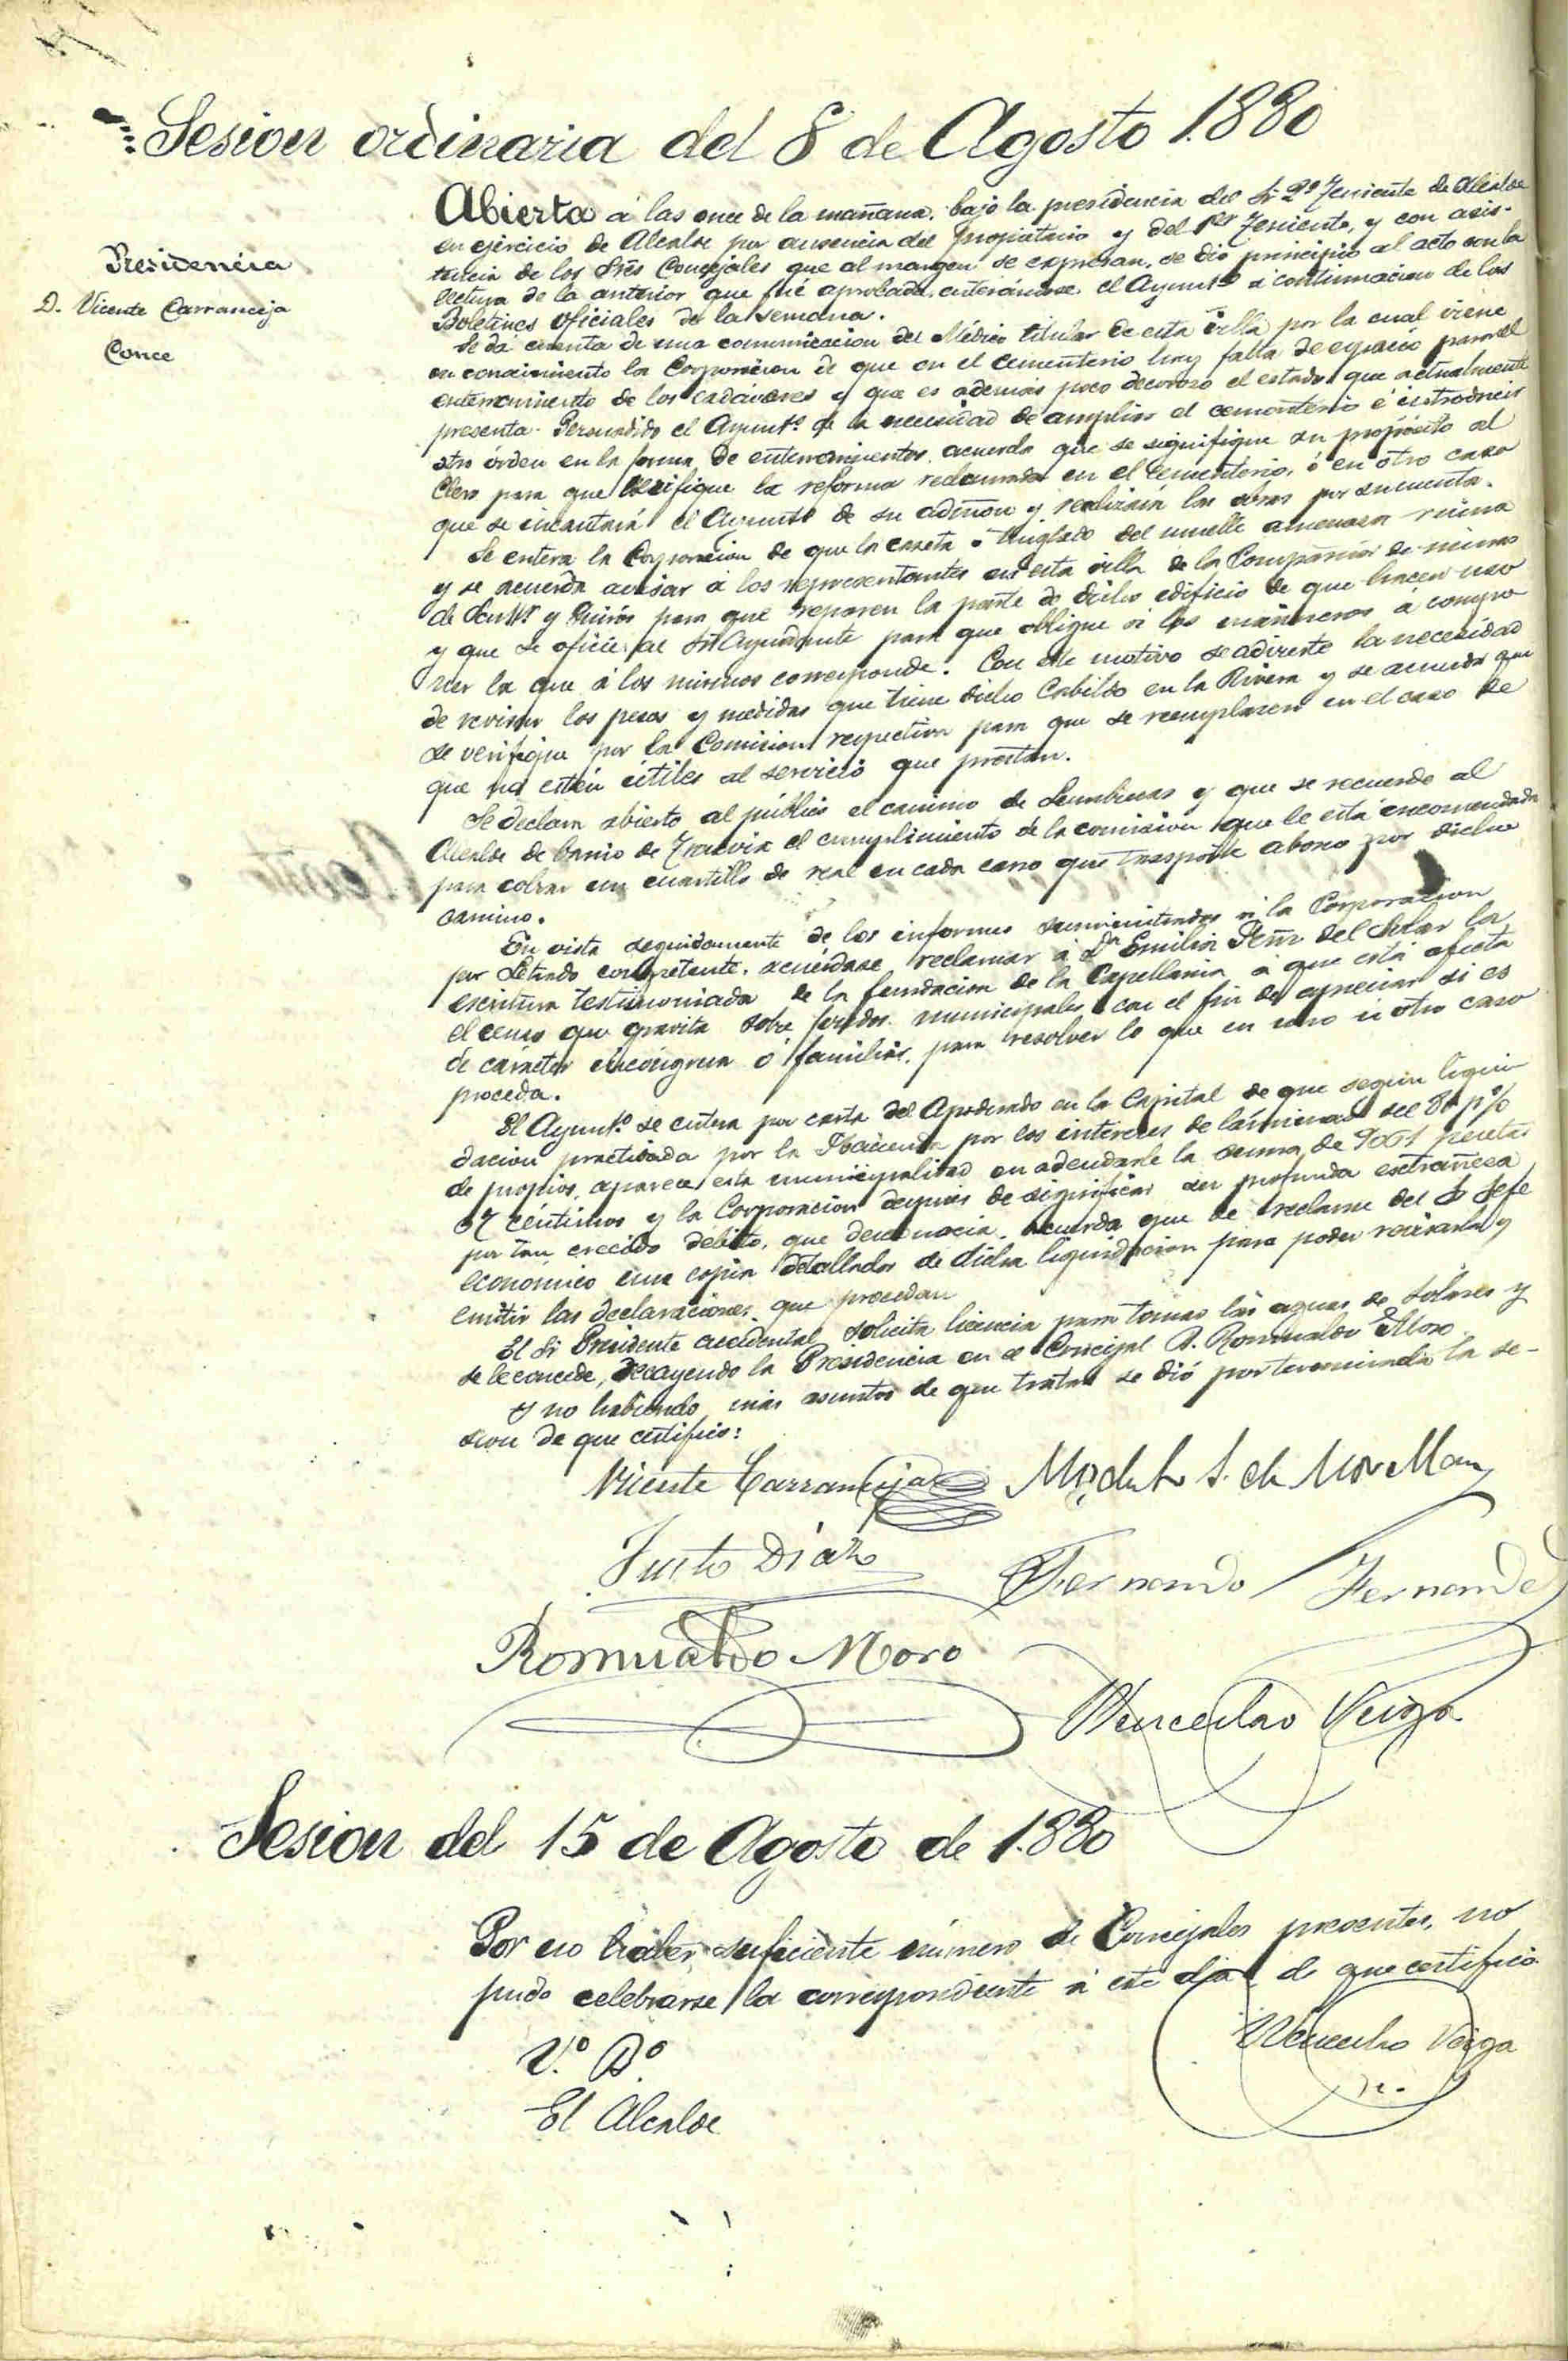 Sesion ordinaria del 8 de Agosto 1880
Presidencia
D. Vicente Carranceja
Conce
Abierta á las once de la mañana, bajo la presidencia del Sr 2º Teniente de Alcalde
en ejercicio de Alcalde por ausencia del propietario y del 1er Teniente, y con asis-
tencia de los Sres Concejales que al margen se expresan, se dió principio al acto con la
lectura de la anterior que fué aprobada, enterándose el Ayuntº á continuacion de los
Boletines oficiales de la semana.
Se dá cuenta de una comunicacion del Médico titular de esta villa por la cual viene
en conocimiento la Corporacion de que en el cementerio hay falta de espacio para el
enterramiento de los cadáveres y que es además poco decoroso el estado que actualmente
presenta. Persuadido el Ayuntº de la necesidad de ampliar el cementerio é introducir
otro órden en la forma de enterramientos, acuerda que se signifique su propósito al
Clero para que verifique la reforma reclamada en el cementerio, ó en otro caso
que se incautará el Ayuntº de su admon y realizará las obras por su cuenta.
Se entera la Corporacion de que la caseta ó tinglado del muelle amenaza ruina
y se acuerda avisar á los representantes en esta villa de la Compañia de minas
de y para que reparen la parte de dicho edificio de que hacen uso
y que se oficie al Sr Ayudante para que obligue á los marineros á compo
ner la que á los mismos corresponde. Con este motivo se advierte la necesidad
de revisar los pesos y medidas que tiene dicho Cabildo en la Rivera y se acuerda que
se verifique por la Comision respectiva para que se reemplacen en el caso de
que no estén útiles al servicio que prestan.
Se declara abierto al público el camino de y que se recuerde al
Alcalde de barrio de el cumplimiento de la comision que le está encomendada
para cobrar un cuartillo de real en cada carro que trasporte abono por dicho
camino.
En vista seguidamente de los informes suministrados á la Corporacion
por Letrado competente, acuérdase reclamar á Dn Emilio del Solar la
escritura testimoniada de la fundacion de la Capellania á que está afecto
el censo que gravita sobre fondos municipales con el fin de apreciar si es
de carácter ó familiar, para resolver lo que en uno ú otro caso
proceda.
El Ayuntº se entera por carta del Apoderado en la Capital de que segun liqui
dacion practicada por la Hacienda por los intereses de láminas del 80 p%
de propios, aparece esta municipalidad en adeudarle la suma de 9061 pesetas
07 céntimos y la Corporacion despues de significar su profunda extrañeza
por tan crecido débito, que desconocia, acuerda que se reclame del Sr Jefe
económico una copia detallada de dicha liquidacion para poder revisarla y
emitir las declaraciones que procedan
El Sr Presidente accidental solicita licencia para tomar las aguas de Solares y
se le concede, recayendo la Presidencia en el Concejal D. Romualdo Moro
Y no habiendo más asuntos de que tratar se dió por terminada la se-
sion de que certifico:
Vicente Carranceja
Justo Diaz
Fernando Fernandez
Romualdo Moro
Wenceslao Veiga
Sesion del 15 de Agosto de 1.880
Por no haber suficiente número de Concejales presentes, no
pudo celebrarse la correspondiente á este dia de que certifico
Wenceslao Veiga
V.º B.º
El Alcalde